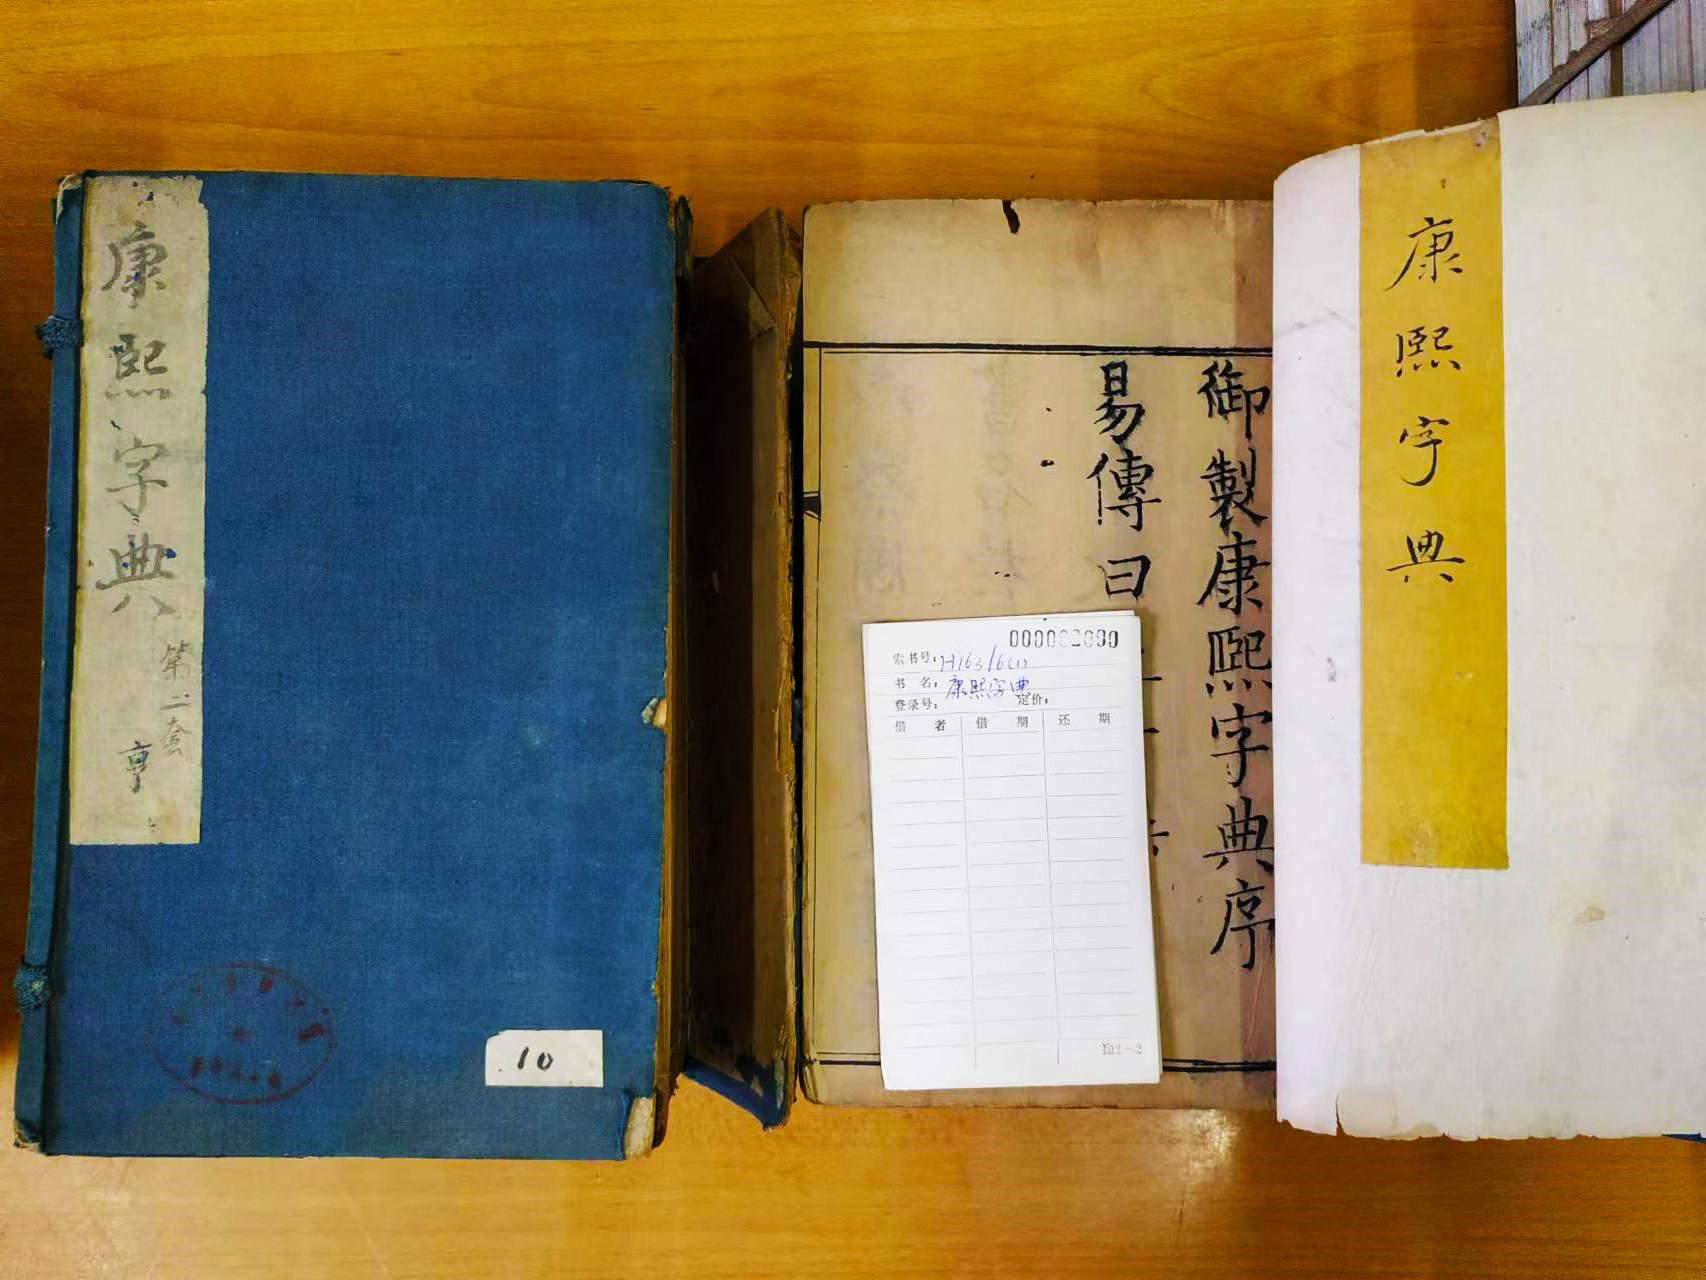 康熙字典
第二套
亨
10
御製康熙字典序
易傳曰
索书号:H163/6(1)
书 名:康熙字典
登录号: 定价:
借 者 借 期 还 期
№2-2
康熙字典